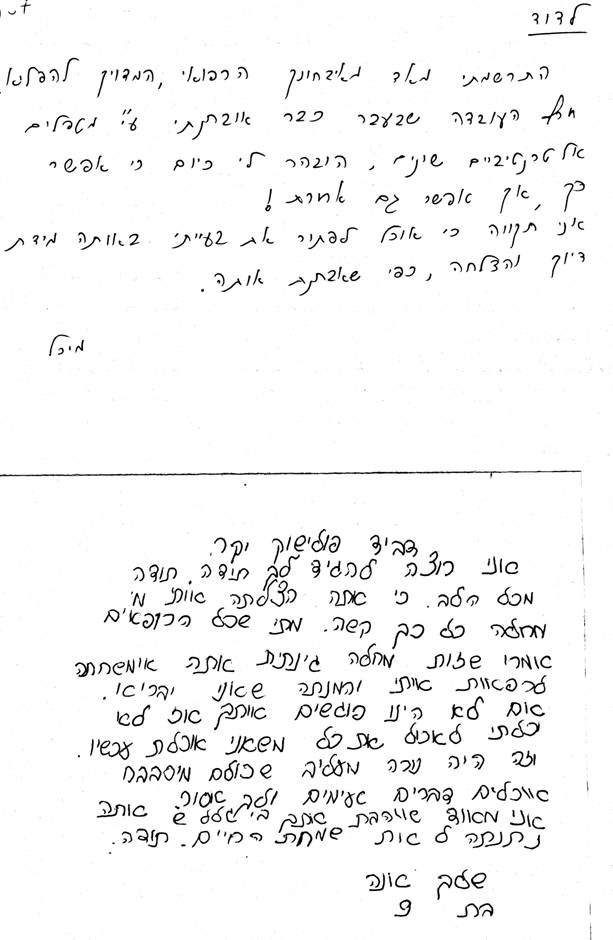 לדוד
התרשמתי מאד מאיבחונך הרפואי, המדויק להפליא
חרף העובדה שבעבר כבר אובחנתי ע"י מטפלים
אלטרנטיביים שונים, הובהר לי כיום כי אפשר
כך, אך אפשר גם אחרת!
אני תקווה כי אוכל לפתור את בעייתי באותה מידת
דיוק והצלחה, כפי שאבחנת אותה.
מיכל
דביד פולישוק יקר.
אני רוצה להגיד לך תודה. תודה
מכל הלב. כי אתה הצלתה אותי מ
מחלה כל כך קשה. מתי שכל הרופאים
אומרו שזות מחלה גינתית אותה אימשחתה
לרפאות איתי והמנתה שאני יבריא.
אום לא הינו פוגשים אותך אוז לא
יכלתי לאכול את כל משאני אוכלת עכשיו.
וזה היה נורה מעליב שכולם מיסבבח
אוכלים דברים טעימים ולך אסור. אותה
אני מאווד אוהבת אותך ביגלל ש
נתנתה ל אות שמחת החיים. תודה.
שלך אונה
בת 9